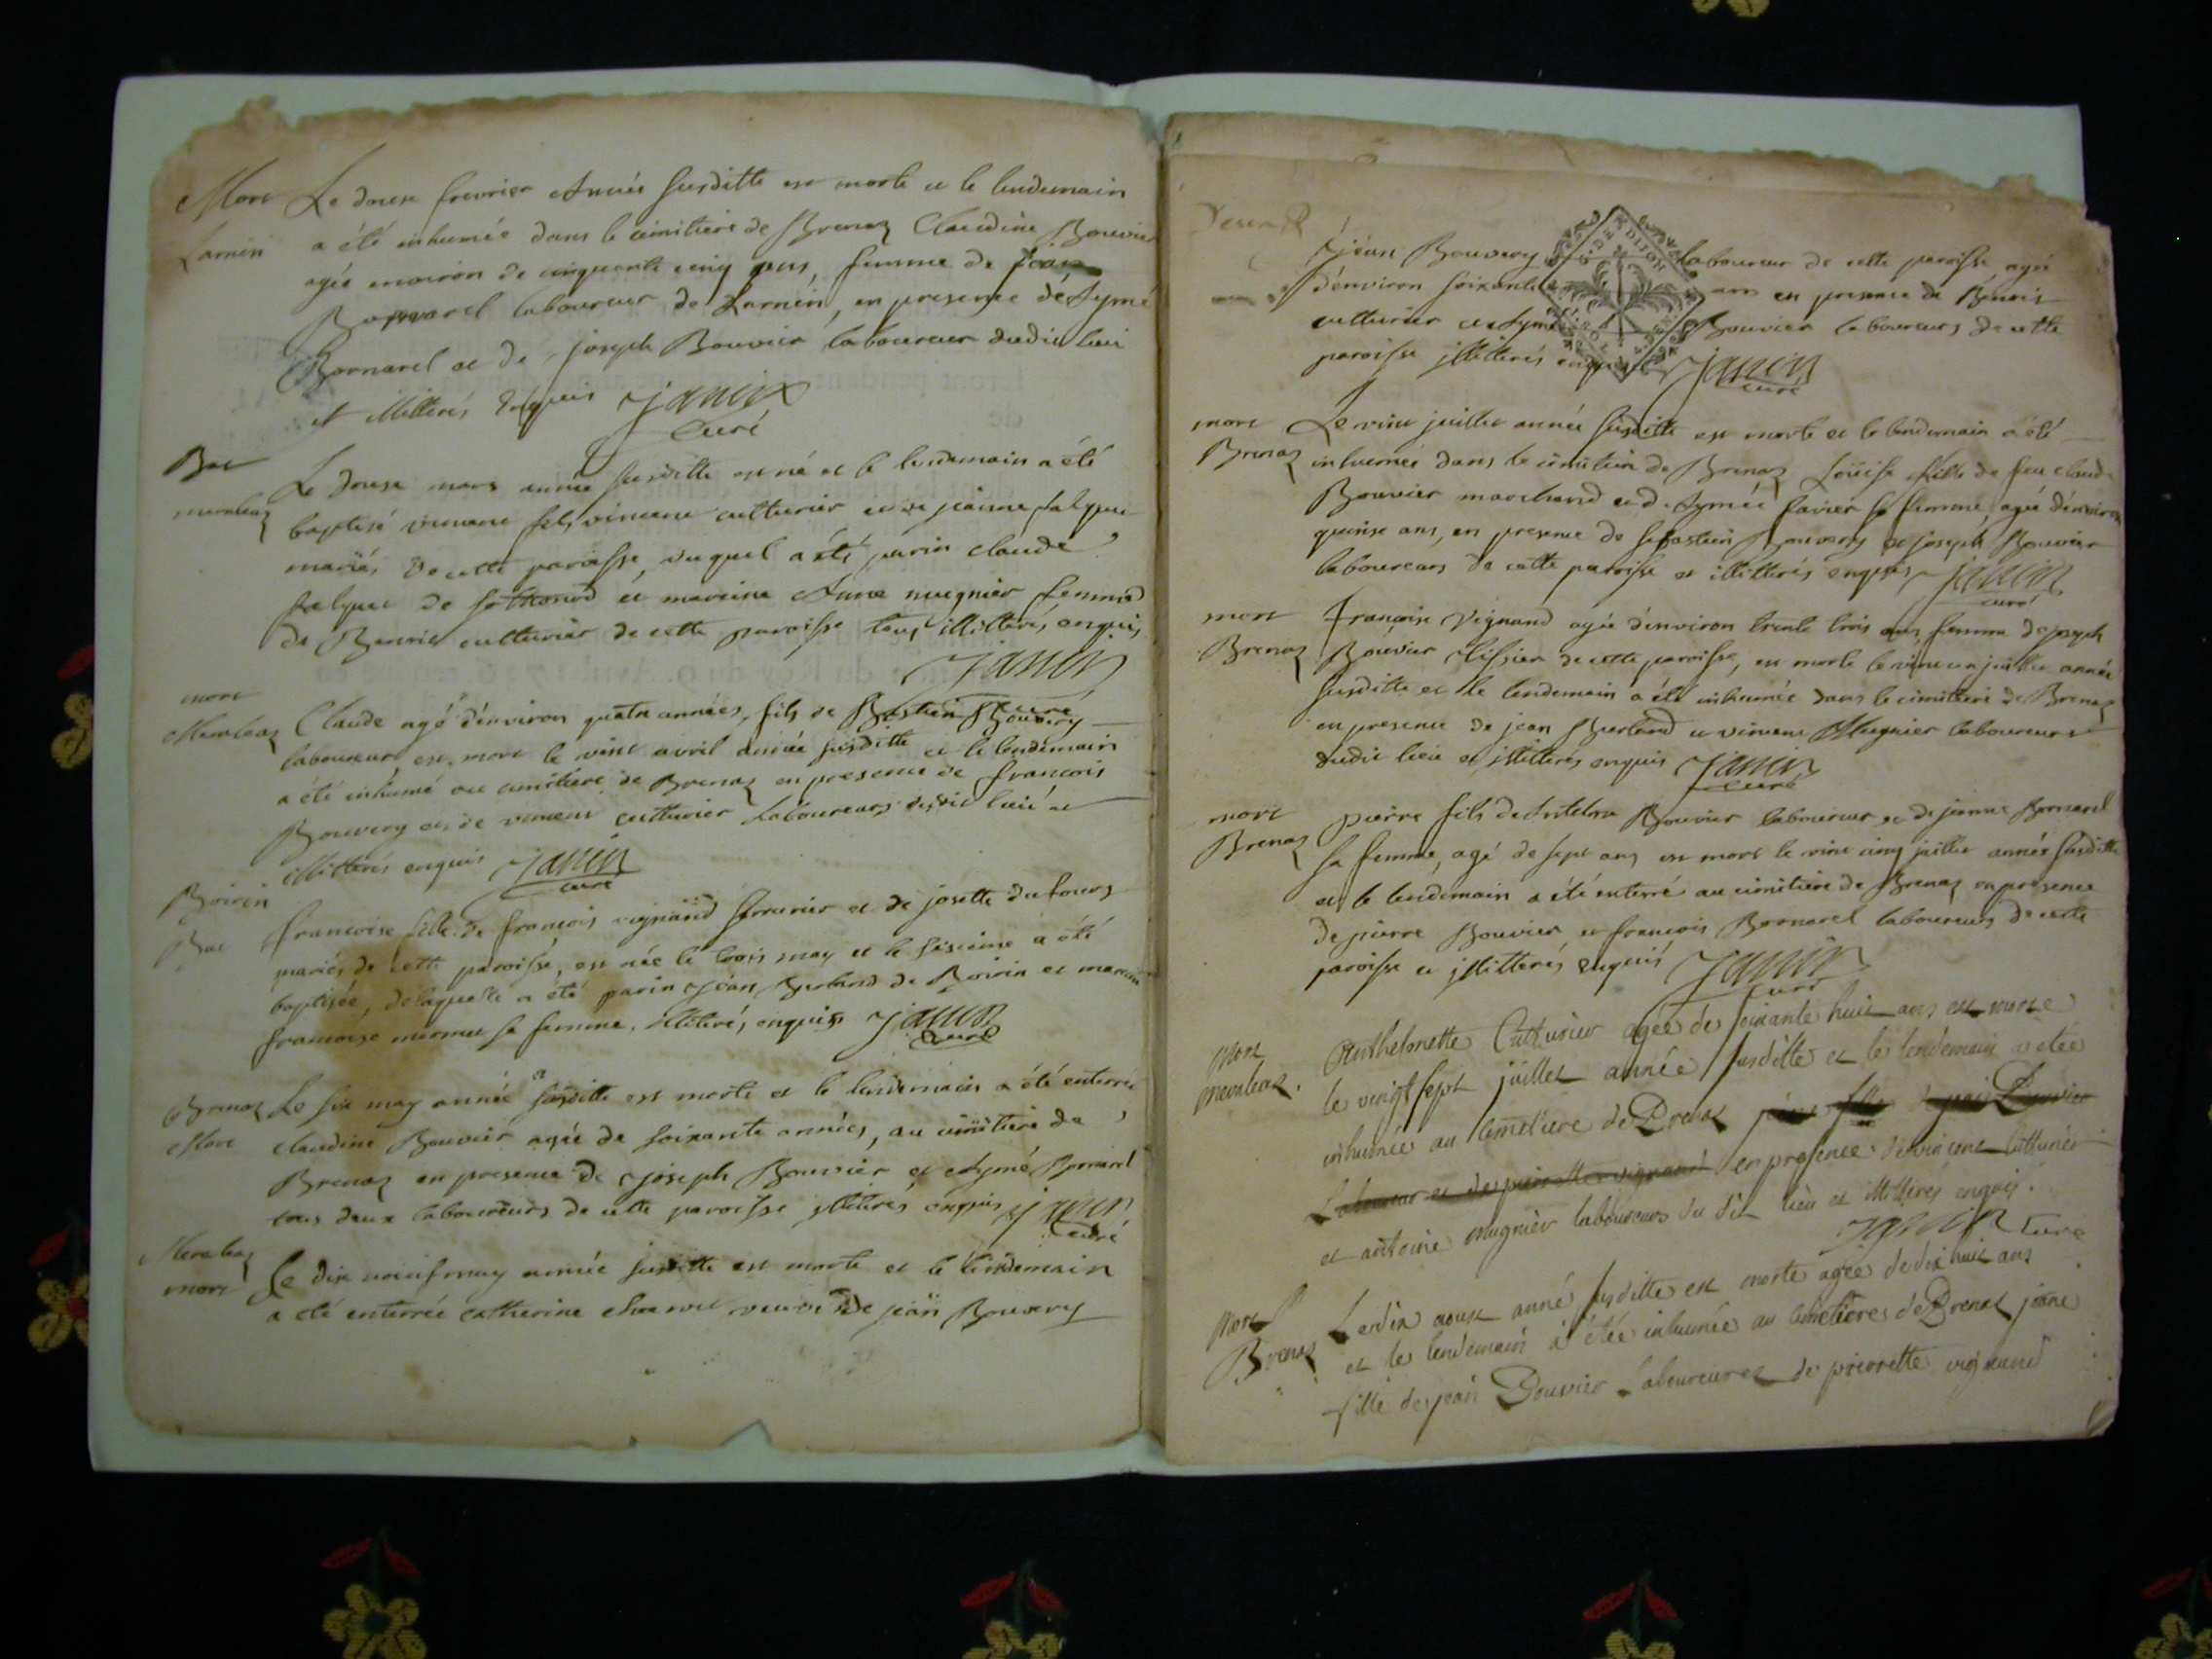 Mort Le douze fevrier Année susditte est morte et le lendemain
Larnin a été inhumée dans le cimitiere de Brenaz Claudine Bouvier
agée environ de cinquante cinq ans, femme de jean
Bornarel laboureur de Larnin, en presence de Aymé
Bornarel et de joseph Bouvier laboureur dudit lieu
et illiterés enquis janin
curé
Bat Le douze mars année susditte est né et le lendemain a été
meraleaz baptisé vincent fils vincent cutturier et de jeanne
mariés de cette paroisse, duquel a été parin claude
de et mareine Anne mugnier femme
de Benoit cutturier de cette paroisse tous illitterés enquis
janin
curé
mort
Meraleaz Claude agé d'environ quatre années, fils de Bastien Bouvery
laboureur est mort le vint avril année susditte et le lendemain
a été inhumé au cimitiere de Brenaz en presence de francois
Bouvery et de vincent cutturier Laboureurs dudit lieu et
illitterés enquis janin
curé
Boirin
Bat francoise fille de francois vignand et de josette dufour
mariés de cette paroisse, est née le trois may et le sixieme a été
baptisée, de laquelle a été parin jean Berland de Boirin et mareine
francoise sa femme, illiterés enquis janin
curé
Brenaz Le six may année susditte est morte et le lendemain a été enterrée
Mort claudine Bouvier agée de soixante années, au cimitiere de
Brenaz en presence de joseph Bouvier et Aymé Bornarel
tous deux laboureurs de cette paroisse illiterés enquis janin
curé
Meraleaz
mort Le dix neuf may année susditte est morte et le lendemain
a été enterrée catherine veuve de jean Bouvery
jean Bouvery laboureur de cette paroisse agé
d'environ soixante ans en presence de Benoit
cutturier et Aymé Bouvier laboureurs de cette
paroisse illitterés enquis janin
curé
mort Le vint juillet année susditte est morte et le lendemain a été
Brenaz inhumée dans le cimitiere de Brenaz Louise fille de feu claude
Bouvier marchand et d'Aymée favier sa femme, agée d'environ
quinse ans, en presence de sebastien Bouvery et joseph Bouvier
laboureurs de cette paroisse et illitterés enquis janin
curé
mort françoise vignand agée d'environ trente trois ans femme de joseph
Brenaz Bouvier tissier de cette paroisse, est morte le vint un juillet année
susditte et le lendemain a été inhumée dans le cimitiere de Brenaz
en presence de jean Berland et vincent Mugnier laboureurs
dudit lieu et illitterés enquis janin
curé
mort pierre fils de Antelme Bouvier laboureur et de jeanne Bornarel
Brenaz sa femme, agé de sept ans est mort le vint cinq juillet année susditte
et le lendemain a été enterré au cimitiere de Brenaz en présence
de pierre Bouvier et francois Bornarel laboureurs de cette
paroisse et illitterés enquis janin
curé
Mort Anthelmette Cutturier agée de soixante huit ans est morte
meraleaz. le vingt sept juillet année susditte et le lendemain a etée
inhumée au cimetiere de Brenaz
en presence de vincent Cutturier
et antoine mugnier laboureurs du dit lieu et illitterés enquis.
janin Curé
Mort Le dix aoust anné susditte est morte agée de dix huit ans
Brenaz et le lendemain a étée inhumée au cimetiere de Brenaz jeane
fille de jean Bouvier Laboureur et de pierrette vignand